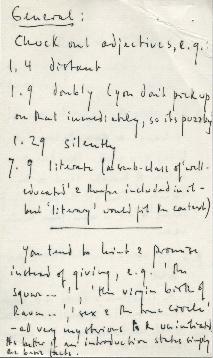 General:
Check out adjectives, e.g.:
1, 4 distant
1. 9 doubly (you don't pick up
on that immediately, so its puzzly
1. 29 silently
7. 9 literate (a sub-class of 'well-
educated' & therefore included in it -
but 'literary' would fit the context)
You tend to hint & promise
instead of giving, e.g. 'the
squaw...', 'the virgin birth of
Raven...', 'sex & the bone circle'
- all very mysterious to the uninitiated
It's better if an introduction states simply
the basic facts.